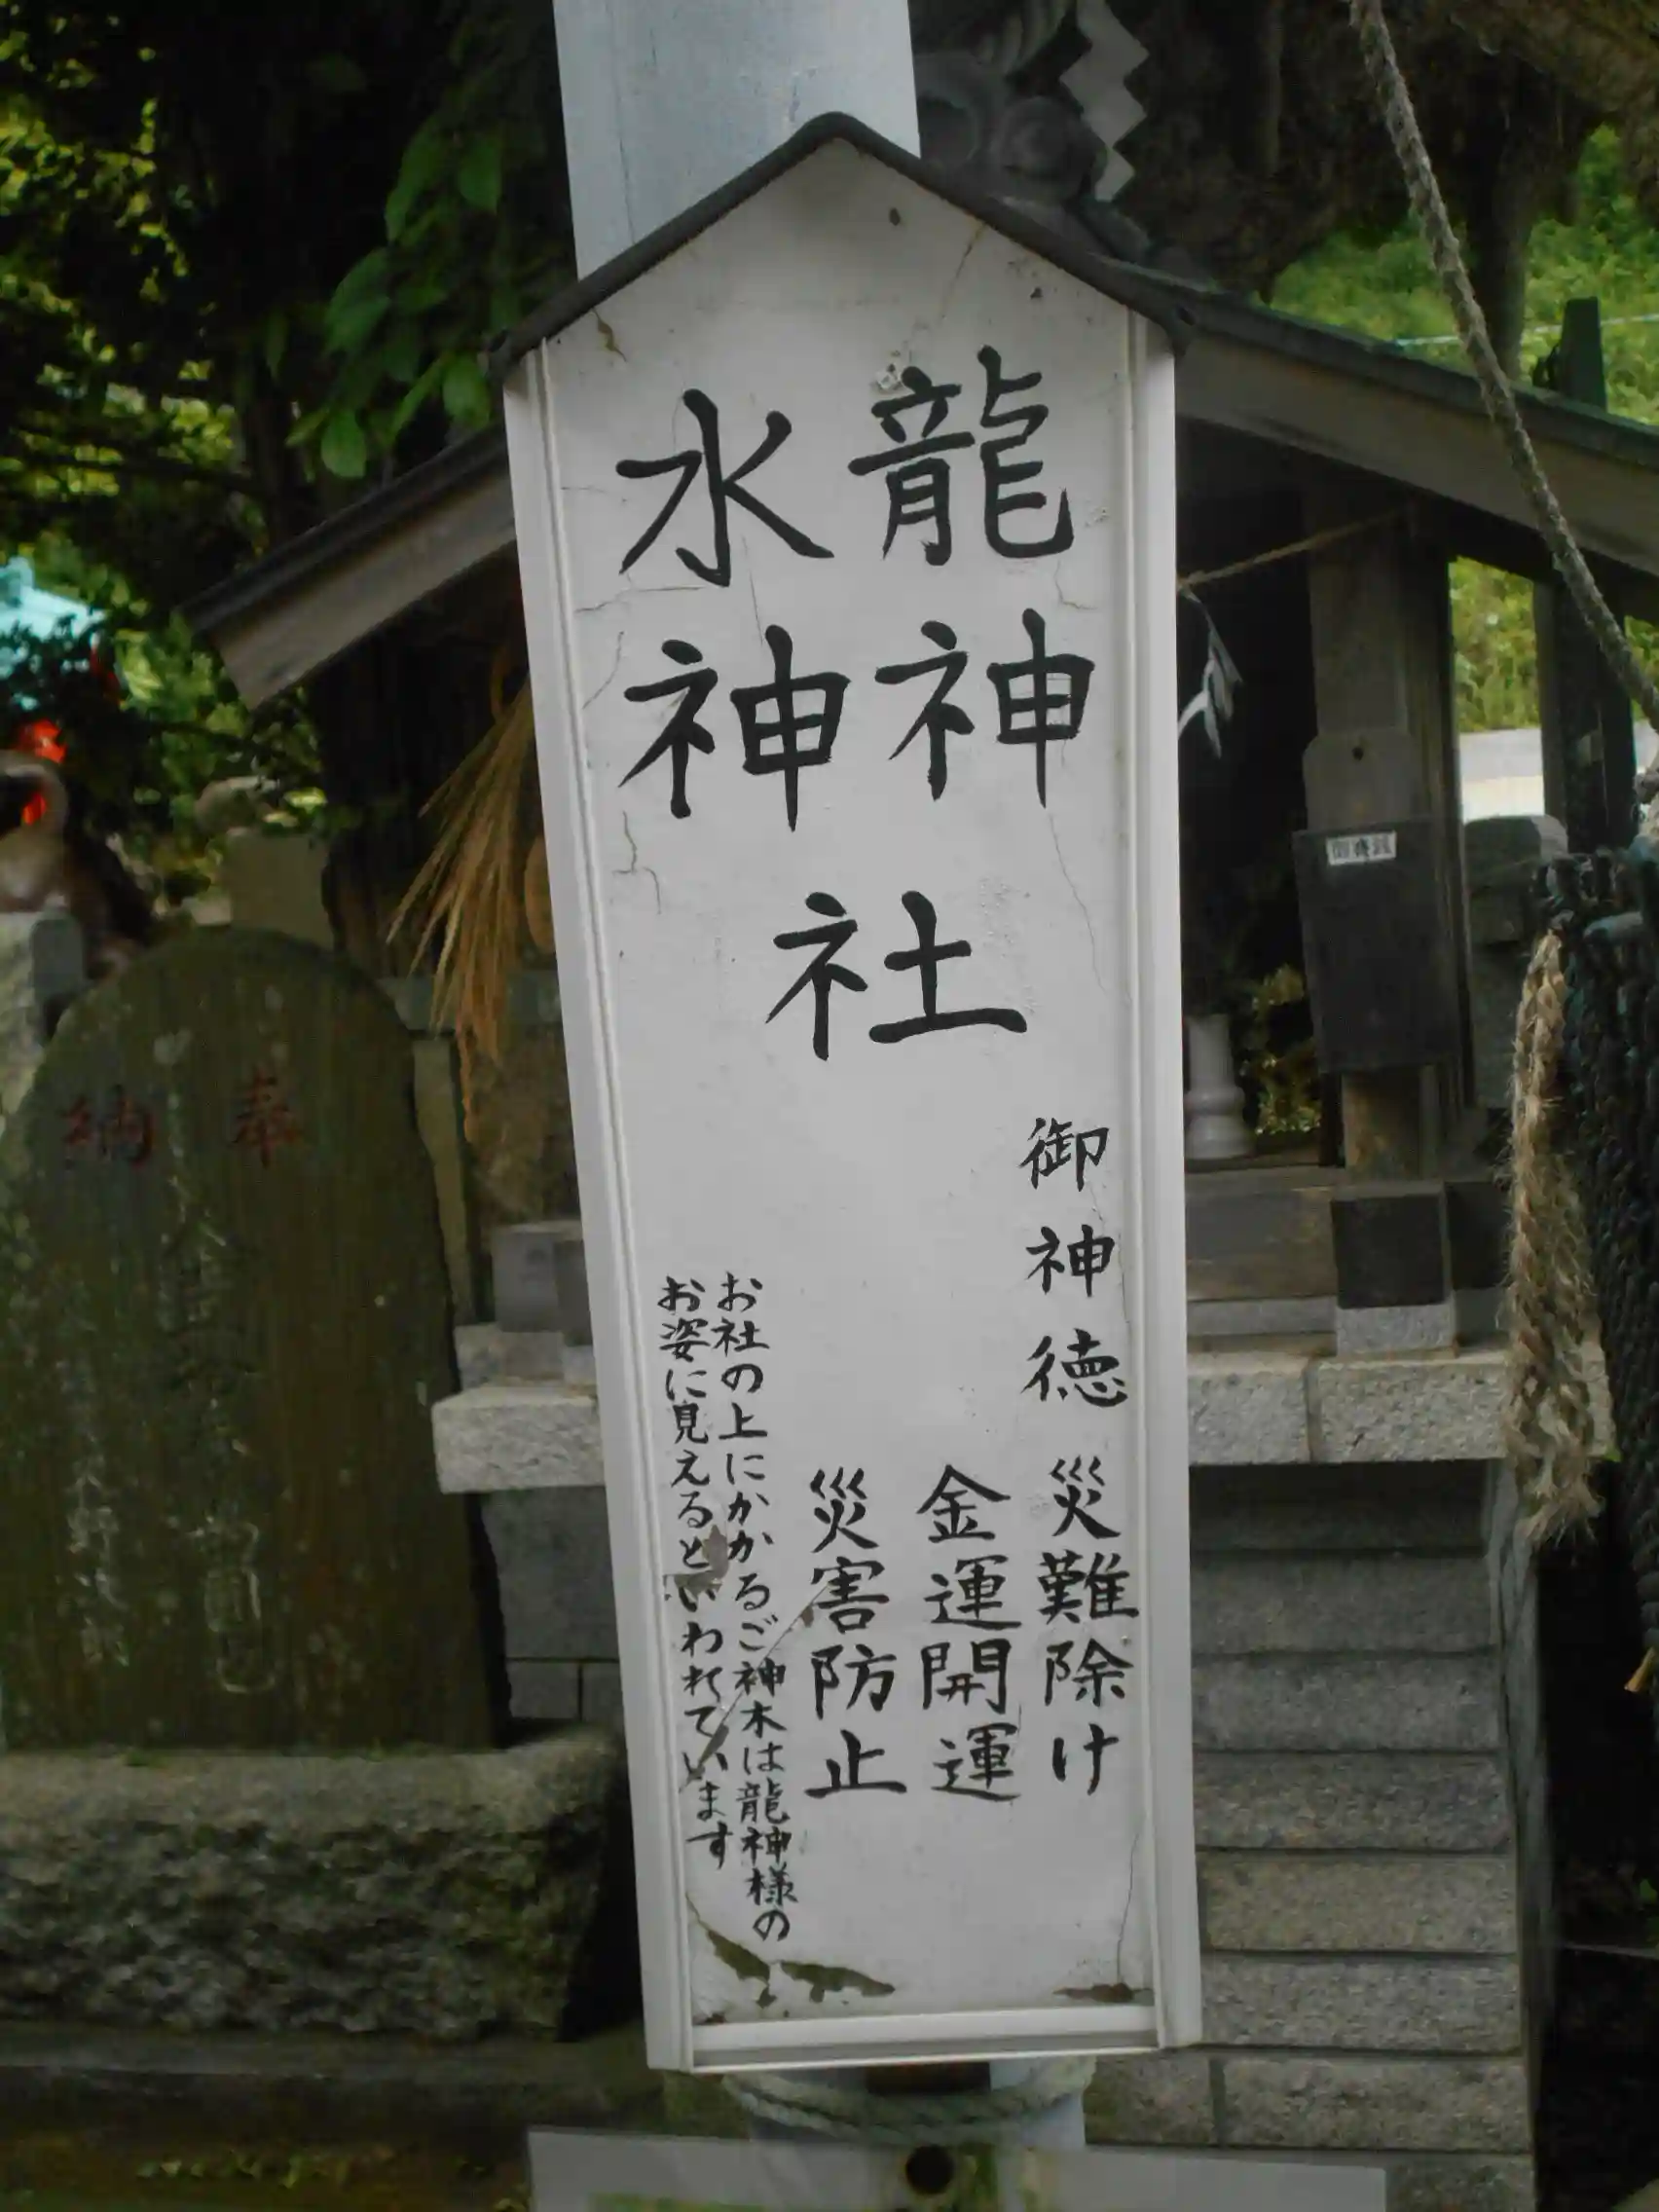 龍神
水神
社
御神徳
災難除け
金運開運
災害防止
お社の上にかかるご神木は龍神様の
お姿に見えるといわれています
奉
納